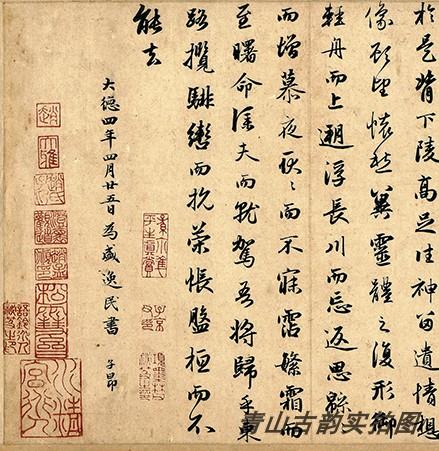 於是背下陵高足往神留遺情想
像顧望懷愁冀靈體之復形御
輕舟而上遡浮長川而忘返思緜
而增慕夜耿〻而不寐霑繁霜而
至曙命僕夫而就駕吾將歸乎東
路攬騑轡而抗策悵盤桓而不
能去
大德四年四月廿五日為盛逸民書
子昂
趙
大雅
子京父印
青山古韵实拍图